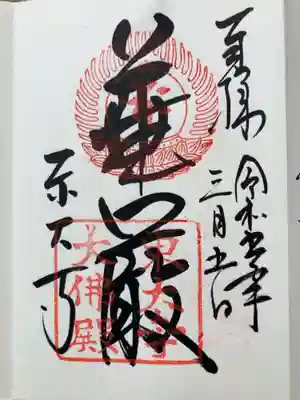 奉拝
令和五年
三月五日
華厳
東大寺
東大寺
大佛殿